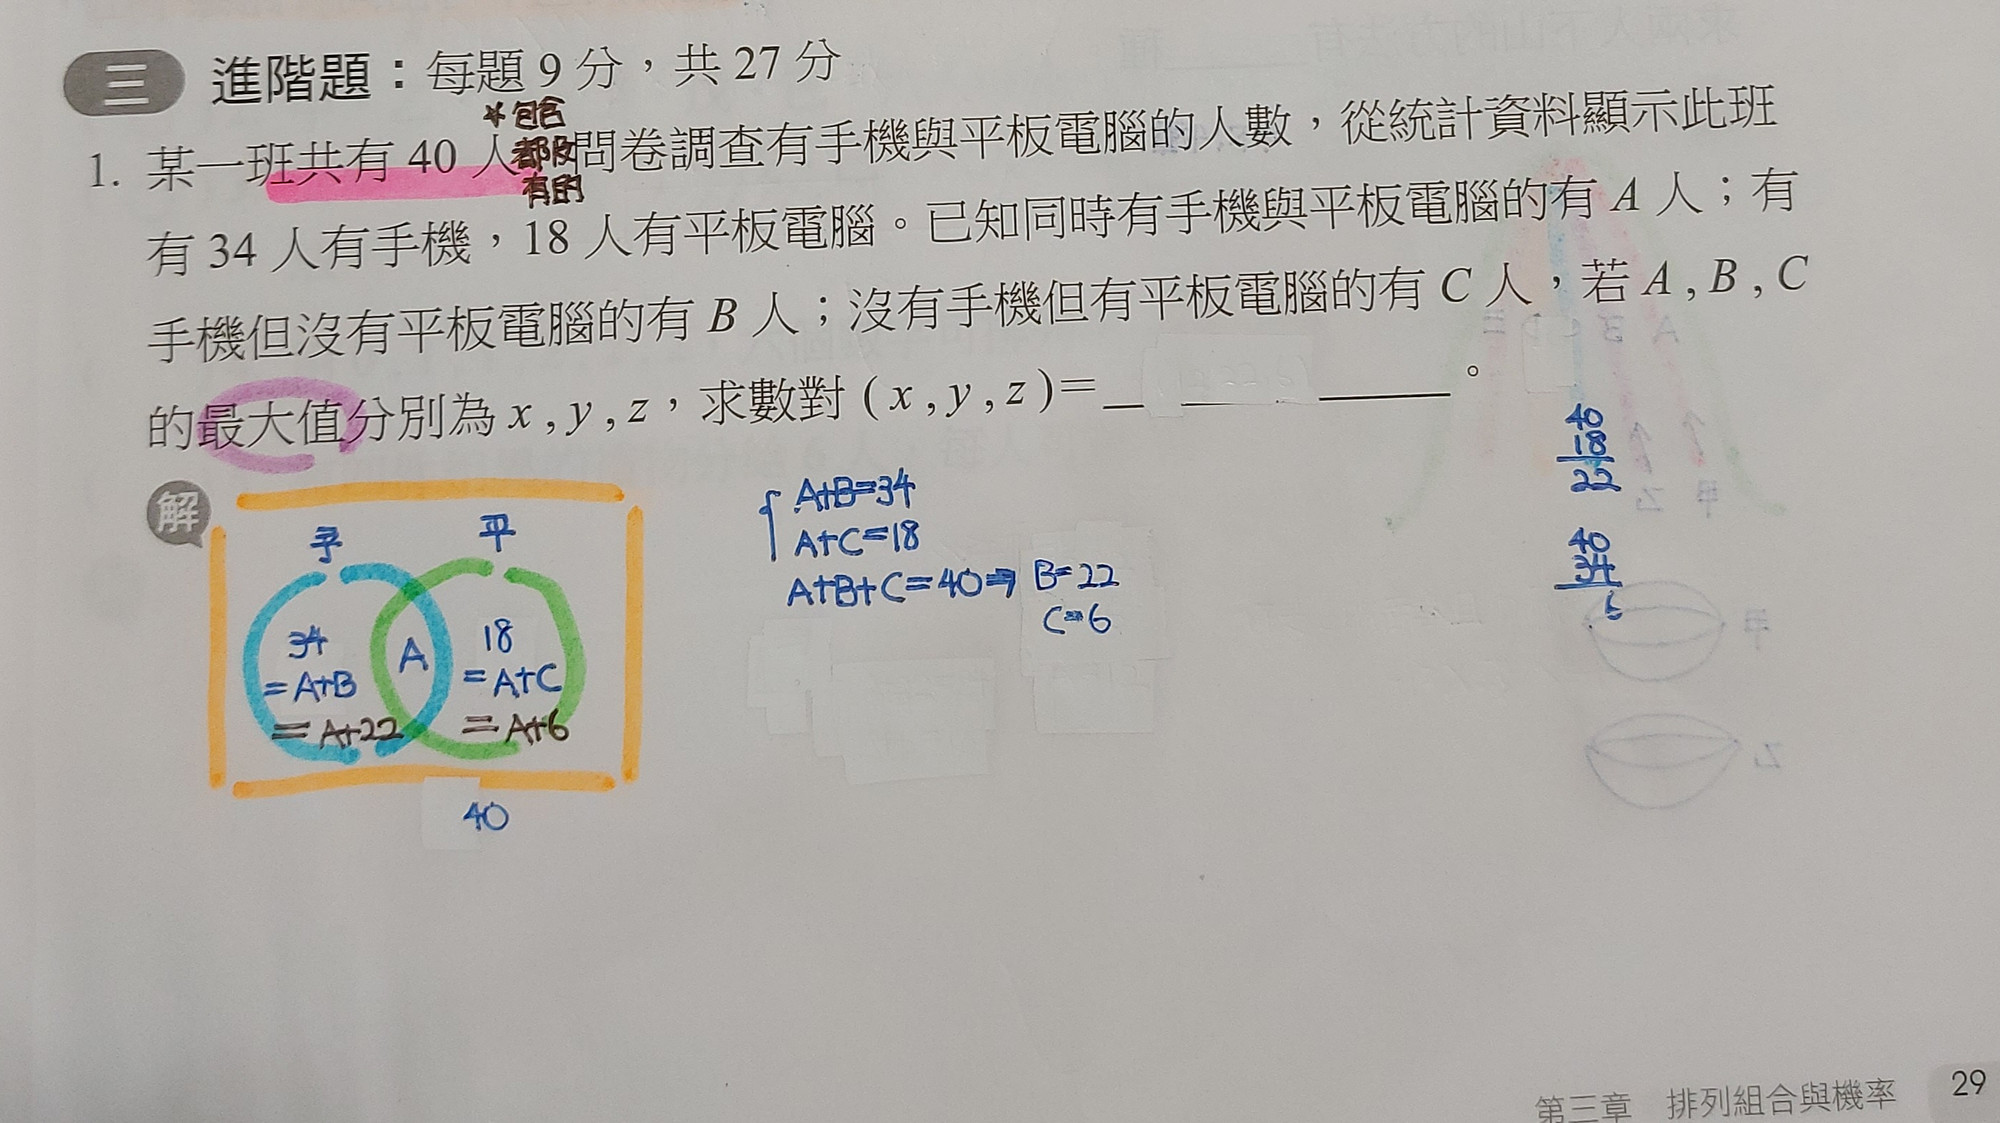 三 進階題：每題 9 分，共 27 分
*包含
都沒
有的
1. 某一班共有 40 人 問卷調查有手機與平板電腦的人數，從統計資料顯示此班
有 34 人有手機，18 人有平板電腦。已知同時有手機與平板電腦的有 A 人；有
手機但沒有平板電腦的有 B 人；沒有手機但有平板電腦的有 C 人，若 A , B , C
的最大值分別為 x , y , z，求數對 ( x , y , z )=
解
手 平
34
=A+B
=A+22
A
18
=A+C
=A+6
40
A+B=34
A+C=18
A+B+C=40⇒ B=22
C=6
40
18
22
40
34
6
第三章 排列組合與機率 29